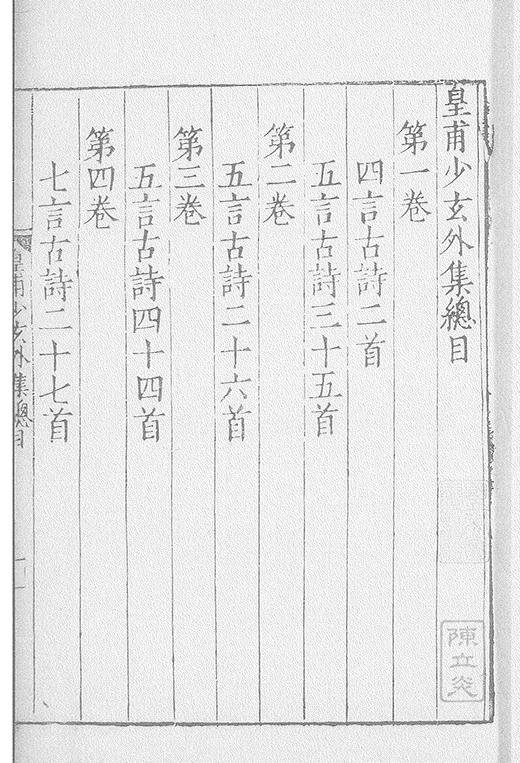 皇甫少玄外集總目
第一卷
四言古詩二首
五言古詩三十五首
第二卷
五言古詩二十六首
第三卷
五言古詩四十四首
第四卷
七言古詩二十七首
皇甫少玄外集總目
一
陳立炎